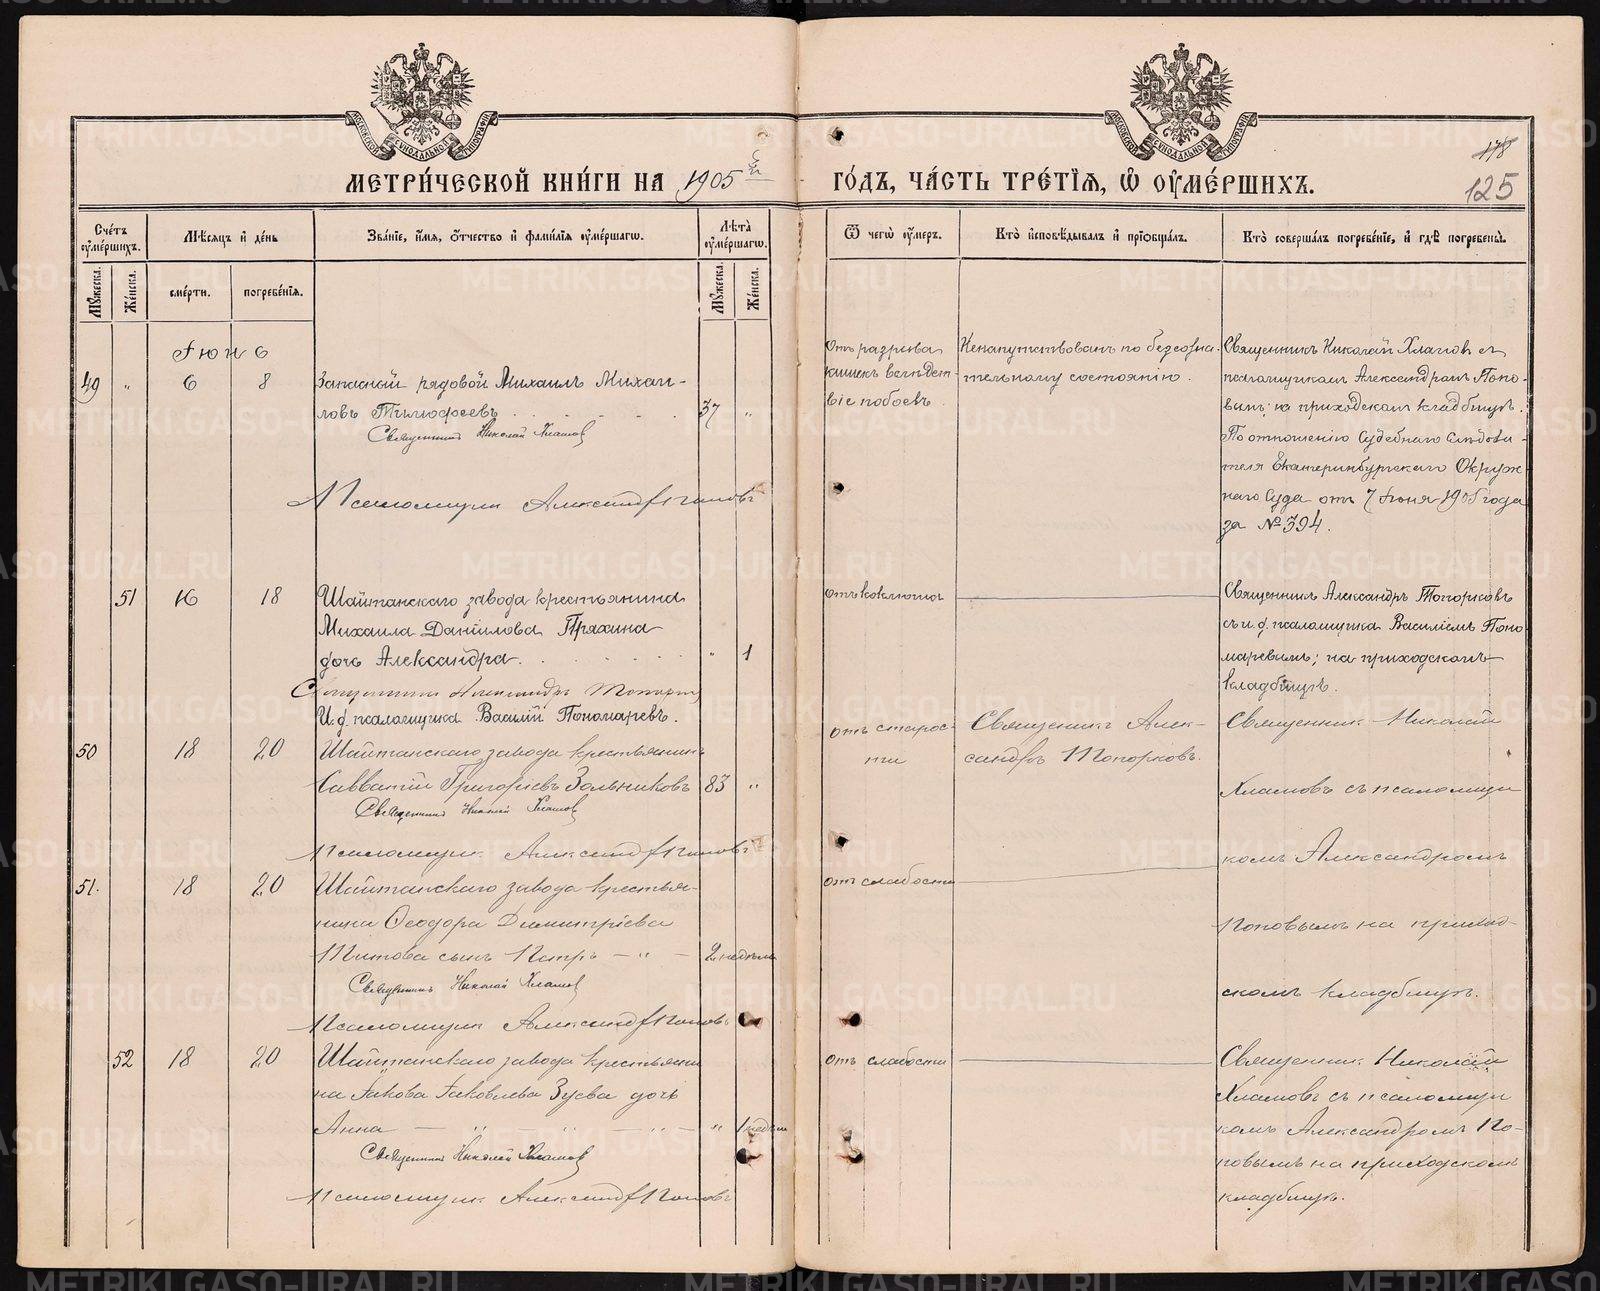 МЕТРИ́ЧЕСКОЙ КНИ́ГИ НА 1905й
ГО́ДЪ, ЧА́СТЬ ТРЕ́ТІЯ, Ѡ҆ ОУ҆МЕ́РШИХЪ.
178
125
Сче́тъ оу҆ме́ршихъ.
Мѣ́сяцъ и҆ де́нь
Зва́ніе, и҆́мя, о҆́тчество и҆ фами́лія оу҆ме́ршагѡ.
Лѣ́та оу҆ме́ршагѡ.
Ѿ чегѡ̀ оу҆́меръ.
Кто̀ и҆сповѣ́дывалъ и҆ прїѡбща́лъ.
Кто̀ соверша́лъ погребе́ніе, и҆ гдѣ̀ погребены̀.
Мꙋ́жеска.
Же́нска.
сме́рти.
погребе́нія.
Мꙋ́жеска.
Же́нска.
Іюнь
49 " 6 8 Запасной рядовой Михаилъ Михаи-
ловъ Тимофеевъ 37 "
Священникъ Николай Хламовъ
Псаломщикъ Александръ Поповъ
Отъ разрыва
кишекъ вслѣдст-
віе побоевъ.
Ненапутствованъ по безсозна-
тельному состоянію.
Священникъ Николай Хламовъ съ
псаломщикомъ Александромъ Попо-
вымъ; на приходскомъ кладбищѣ.
По отношенію Судебнаго Слѣдова-
теля Екатеринбургскаго Окруж-
наго Суда отъ 7 Іюня 1905 года
за № 394.
51 16 18 Шайтанскаго завода крестьянина
Михаила Данилова Пряхина
дочь Александра. " 1
Священникъ Александръ Топорковъ
И.д. псаломщика Василій Пономаревъ.
отъ коклюша
Священникъ Александръ Топорковъ
съ и.д. псаломщика Василіемъ Поно-
маревымъ; на приходскомъ
кладбищѣ.
50 18 20 Шайтанскаго завода крестьянинъ
Савватій Григорьевъ Зольниковъ 83 "
Священникъ Николай Хламовъ
Псаломщикъ Александръ Поповъ
отъ старос-
ти
Священникъ Алек-
сандръ Топорковъ.
Священникъ Николай
Хламовъ съ псаломщи
комъ Александромъ
Поповымъ на приход-
скомъ кладбищѣ.
51. 18 20 Шайтанскаго завода крестья-
нина Ѳеодора Димитріева
Титова сынъ Петръ — " — 2 недѣли
Священникъ Николай Хламовъ
Псаломщикъ Александръ Поповъ
отъ слабости
52 18 20 Шайтанскаго завода крестьяни
на Іакова Іаковлева Зуева дочь
Анна — " — " — " — " 1 недѣли
Священникъ Николай Хламовъ
Псаломщикъ Александръ Поповъ
отъ слабости
Священникъ Николай
Хламовъ съ псаломщи
комъ Александромъ По-
повымъ на приходскомъ
кладбищѣ.
METRIKI.GASO-URAL.RU